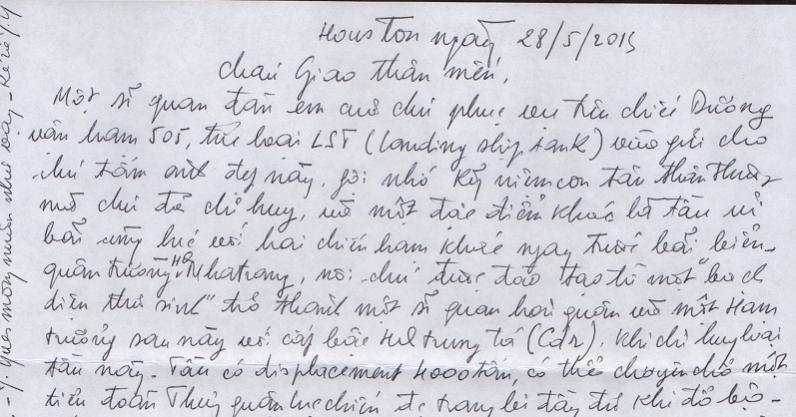 Houston ngày 28/5/2015
cháu Giao thân mến,
Một sĩ quan đàn em của chú phục vụ trên chiếc Dương
vận hạm 505, thuộc loại LST (landing ship tank) vừa gửi cho
chú tấm ảnh đẹp này, gợi nhớ kỷ niệm con tàu thân thương
mà chú đã chỉ huy, và một đặc điểm khác là tàu ủi
bãi cùng lúc với hai chiến hạm khác ngay trước bãi biển
quân trường HQ Nhatrang, nơi chú được đào tạo từ một "bạch
diện thư sinh" trở thành một sĩ quan hải quân và một Hạm
trưởng sau này với cấp bậc HQ trung tá (Cdr), khi chỉ huy loại
tàu này. Tàu có displacement 4000 tấn, có thể chuyên chở một
tiểu đoàn Thuỷ quân lục chiến đề trang bị đầy đủ khi đổ bộ -